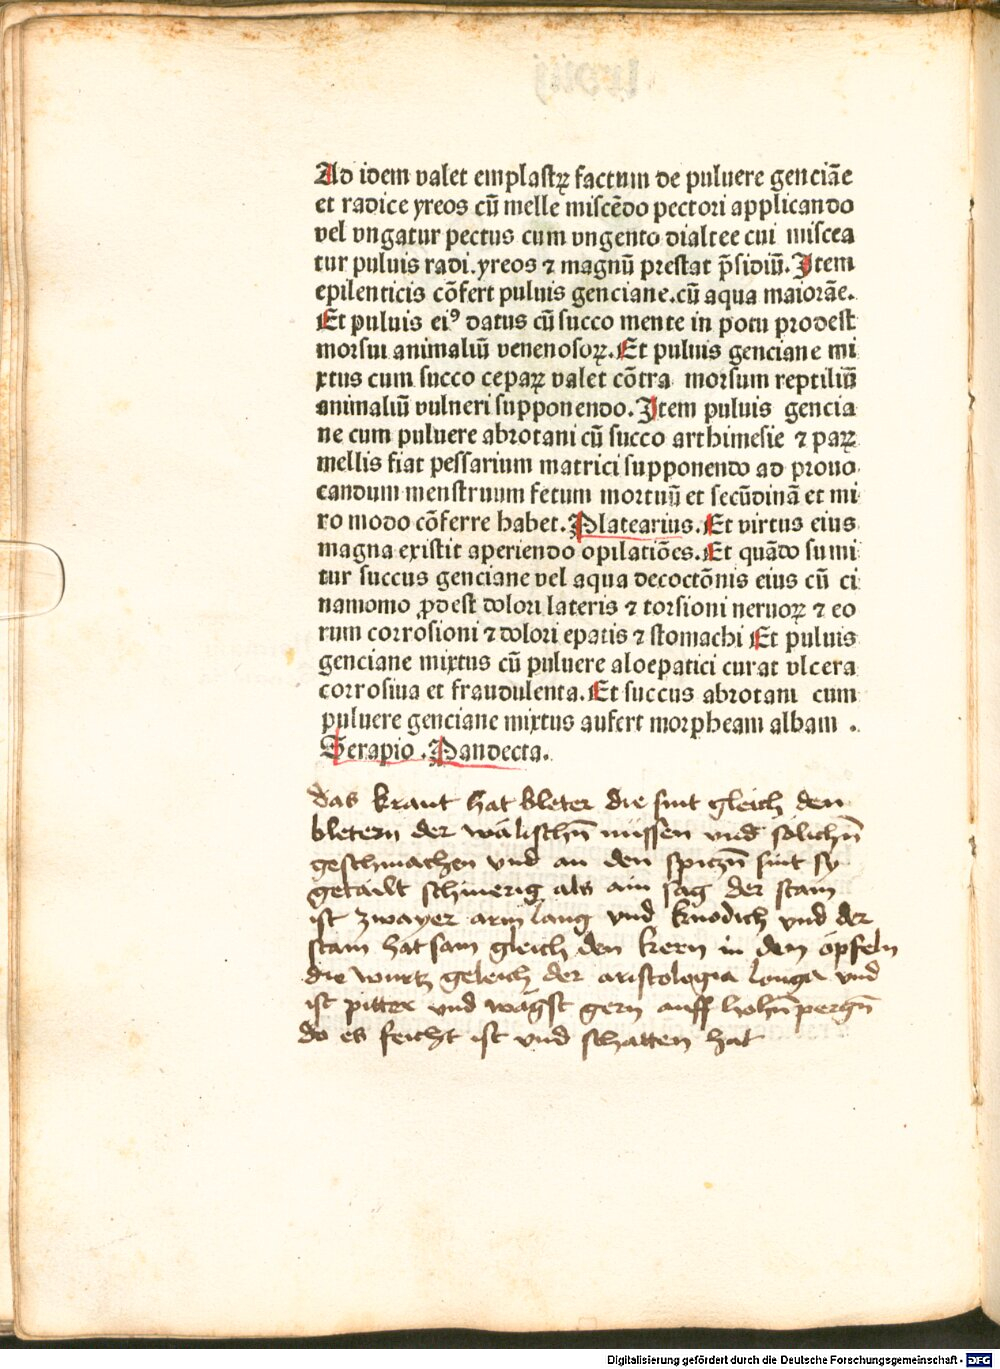 Ad idem valet emplastꝝ factum de puluere genciāe
et radice yreos cū melle miscēdo pectori applicando
vel vngatur pectus cum vngento dialtee cui miscea
tur puluis radi. yreos ⁊ magnū prestat p̄sidiū. Item
epilenticis cōfert puluis genciane. cū aqua maiorāe.
Et puluis eiꝰ datus cū succo mente in potu prodest
morsui animaliū venenosoꝝ. Et puluis genciane mi
xtus cum succo cepaꝝ valet cōtra morsum reptiliū
animaliū vulneri supponendo. Item puluis gencia
ne cum puluere abrotani cū succo arthimesie ⁊ paꝝ
mellis fiat pessarium matrici supponendo ad prouo
candum menstruum fetum mortuū et secūdinā et mi
ro modo cōferre habet. Platearius. Et virtus eius
magna existit aperiendo opilatiōes. Et quādo sumi
tur succus genciane vel aqua decoctōnis eius cū ci
namomo ꝓdest dolori lateris ⁊ torsioni neruoꝝ ⁊ eo
rum corrosioni ⁊ dolori epatis ⁊ stomachi Et puluis
genciane mixtus cū puluere aloepatici curat vlcera
corrosiua et fraudulenta. Et succus abrotani cum
puluere genciane mixtus aufert morpheam albam .
Serapio. Pandecta.
das kraut hat bleter die sint gleich den
bletern der wälischn̄ nussen vnd sölichn̄
geschmachen vnd an den spiczn̄ sint sy
getailt schmerig als ain sag der stam
ist zwayer arm lang vnd knodich vnd der
stam hat sam gleich den kern in den öpfeln
die wurtz geleich der aristologia longa vnd
ist pitter vnd wägst gern auff hohn̄ pergn̄
do es feicht ist vnd schatten hat
Digitalisierung gefördert durch die Deutsche Forschungsgemeinschaft - DFG